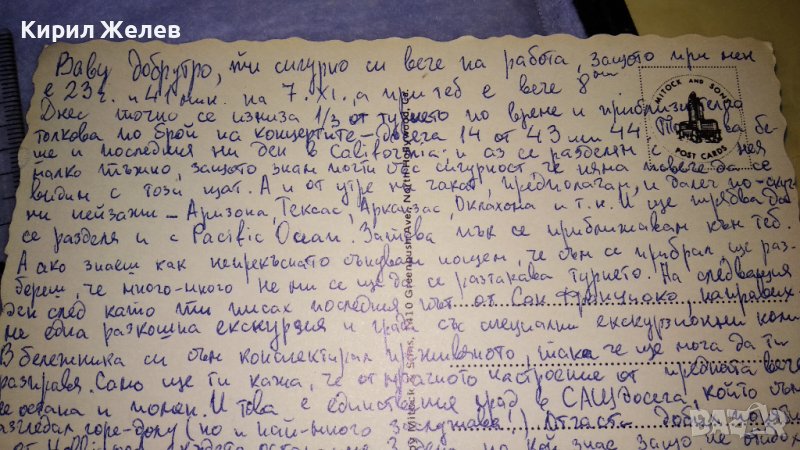 Кирил Желев
Ваву добрутро, ти сигурно си вече на работа, защото при мен
е 23 ч. и 41 мин. на 7.XI., а при теб е вече 8
Днес точно се изниза 1/3 от турнето по време и приблизително
толкова по брой на концертите – двега 14 от 43 или 44. Това бе-
ше и последния ни ден в California и аз се разделям с нея
малко тъжно, защото знам почти със сигурност че няма повече да се
видим с този щат. А и от утре ни чакат, предполагам, и далеч по-скуч-
ни пейзажи – Аризона, Тексас, Арканзас, Оклахома и т.н. И ще трябва да
се разделя и с Pacific Ocean. Затова пък се приближавам към теб.
А ако знаеш как непрекъснато сънувам нощем, че съм се прибрал ще раз-
береш че много-много не ми се ще да се разтакава турнето. На следващия
ден след като ти писах последния път от Сан Франциско направих-
ме една разкошна екскурзия из града със специални екскурзионни коли
В бележника си съм конспектирал преживяното, така че ще мога да ти
разправя. Само ще ти кажа, че от мрачното настроение от предната вечер
не остана и помен. И това е единствения град в САЩ досега, който съм
разгледал горе-долу (но и най-много заслужава!) Отчасти
MITOCK AND SONS
POST CARDS
Mitock & Sons, Greenbush Ave., North Hollywood, Ca.